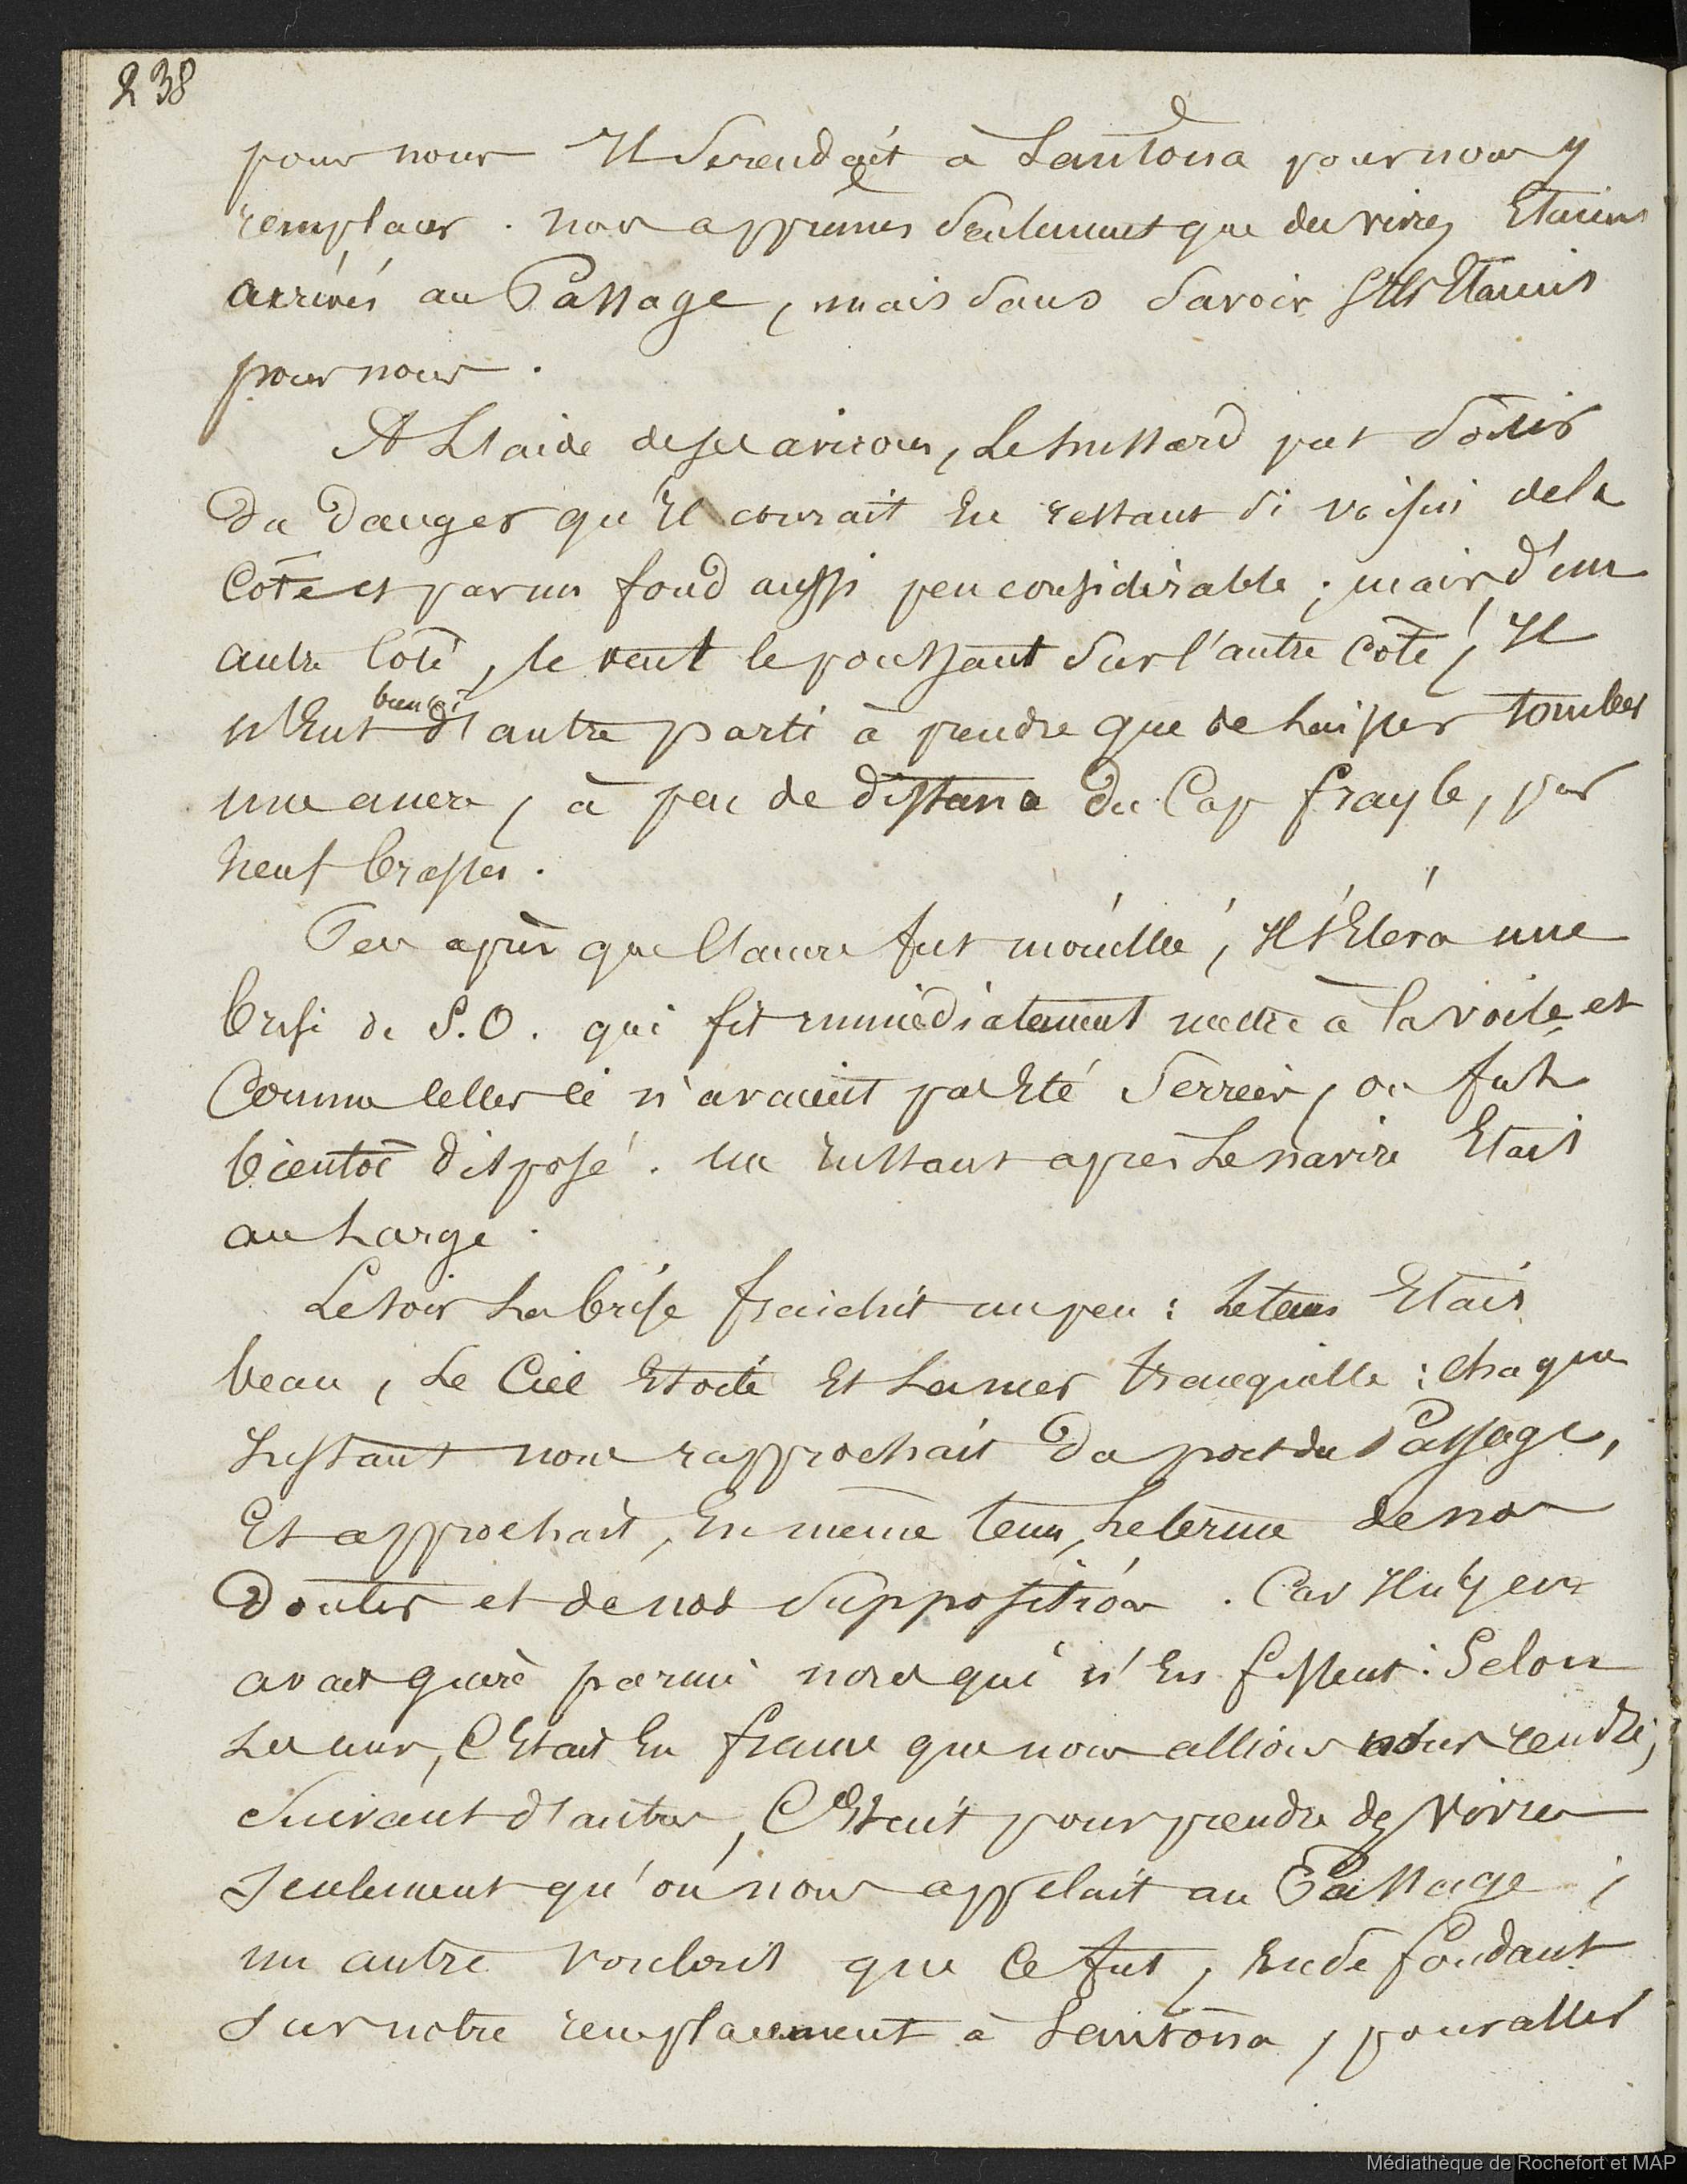 238
pour nous Il se rendait à Santona pour nous y
remplacer . nous apprîmes seulement que des vivres Etaient
arrivés au Passage, mais sans savoir s'Ils Etaient
pour nous .
A L'aide de ses avirons, Le hussard put sortir
du danger qu'Il courait En restant si voisin de la
Côte et par un fond aussi peu considérable ; mais d'un
autre Coté, le vent le poussant sur l'autre Côté, Il
n'Eut bientôt d'autre parti à prendre que de Laisser tomber
une ancre, à peu de distance du Cap frayle, par
neuf brasses .
Peu après que l'ancre fut mouillée, Il s'Eléva une
brise de S.O. qui fit immédiatement mettre à la voile et
Comme celles ci n'avaient pas Eté serrées, on fut
bientôt disposé . un Instant après Le navire Etait
au Large .
Le soir La brise fraichit un peu : Le tems Etait
beau, Le Ciel Etoilé Et La mer tranquille : chaque
Instant nous rapprochait du port du Passage,
Et approchait, En même tems, Le terme de nos
doutes et de nos suppositions . Car Il n'y en
avait guère parmi nous qui n'En fissent : Selon
Les uns, C'Etait En france que nous allions nous rendre;
suivant d'autres, C'Etait pour prendre des vivres
seulement qu'on nous appelait au Passage ;
un autre voulait que Ce fut, En se fondant
sur notre remplacement à Santona, pour aller
Médiathèque de Rochefort et MAP